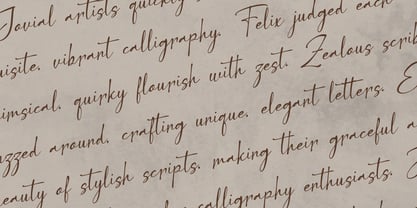 Jovial artists quickly
vibrant calligraphy. Felix judged each
quirky flourish with zest. Zealous
around, crafting unique, elegant letters.
of stylish scripts, making their graceful
calligraphy enthusiasts.